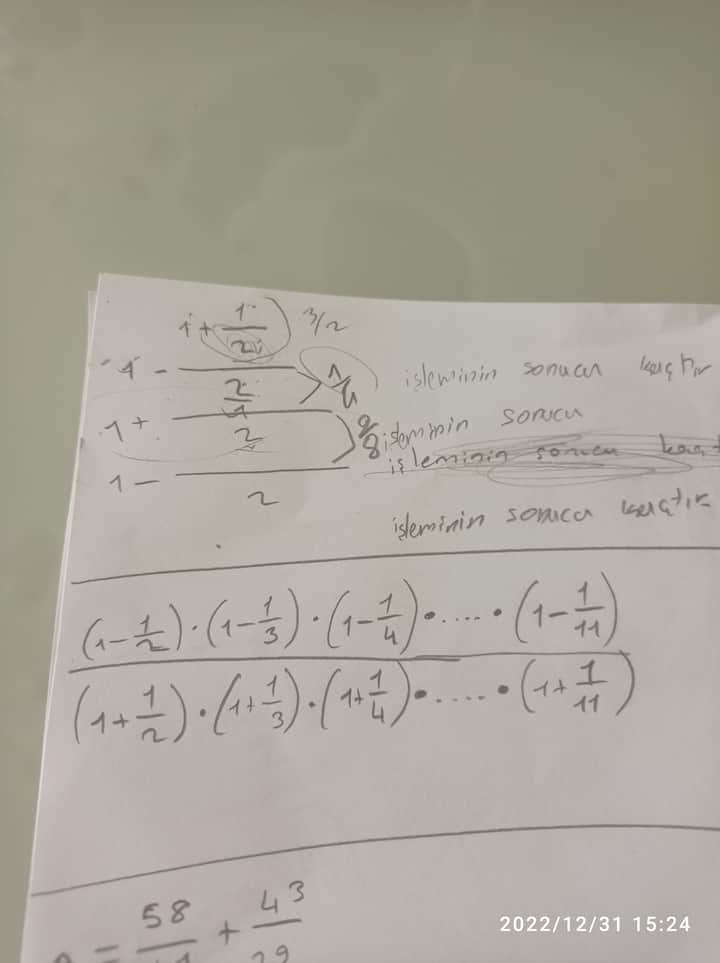 1 + 1/2 3/2
1 - 2 1/4 işleminin sonucu kaçtır
1 + 2 9/8 işleminin sonucu
işleminin sonucu kaçt
1 - 2
işleminin sonucu kaçtır
(1-1/2)·(1-1/3)·(1-1/4)·....·(1-1/11)
(1+1/2)·(1+1/3)·(1+1/4)·....·(1+1/11)
= 58 + 43
29
2022/12/31 15:24